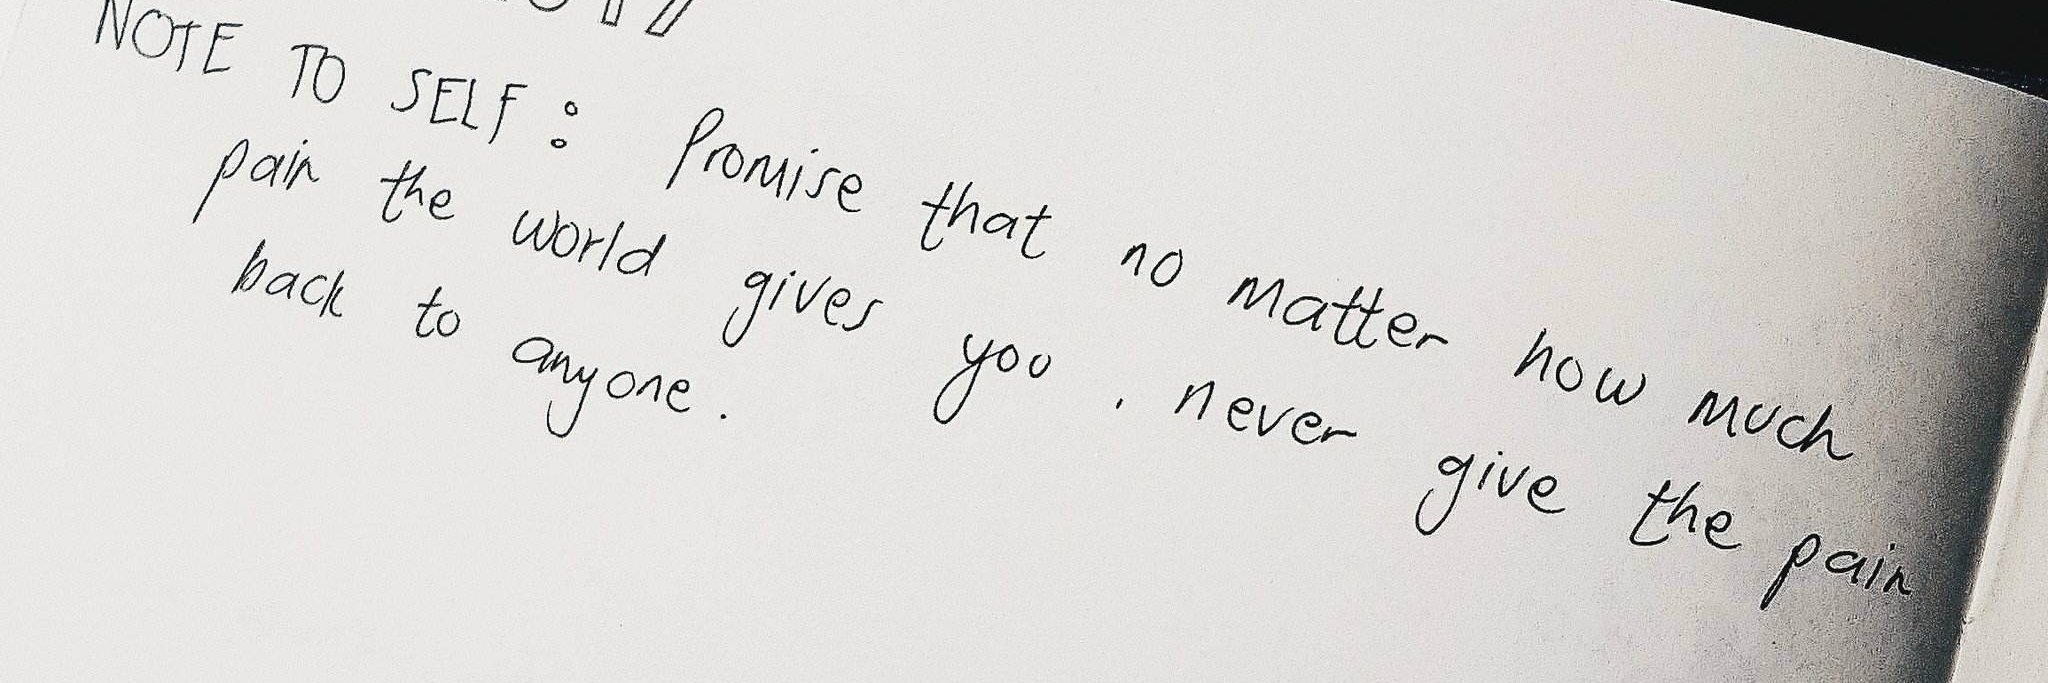 NOTE TO SELF: Promise that no matter how much
pain the world gives you, never give the pain
back to anyone.